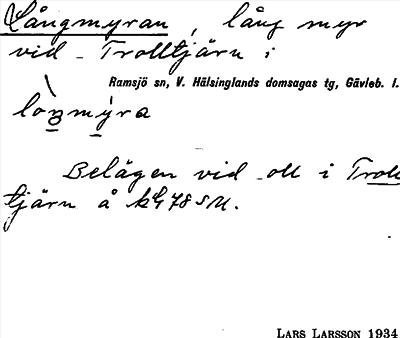 Långmyran, lång myr
vid Trolltjärn i
Ramsjö sn, V. Hälsinglands domsagas tg, Gävleb. l.
Belägen vid oll i Troll
tjärn å kbl 78 SM.
LARS LARSSON 1934